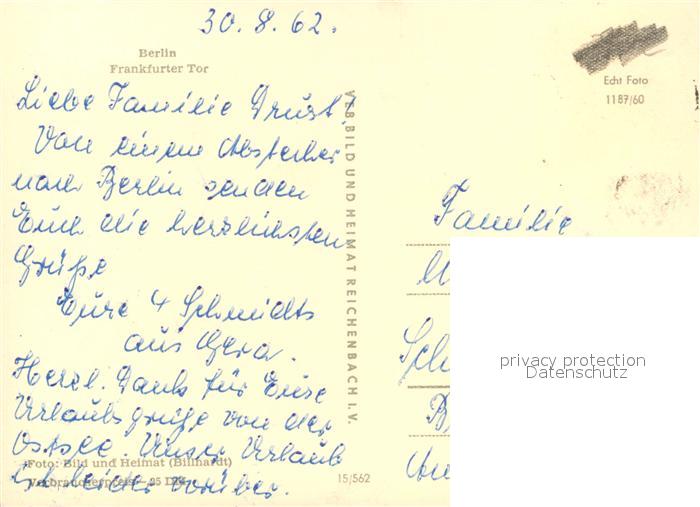 30.8.62.
Berlin
Frankfurter Tor
Liebe Familie Drust!
Von einem Abstecher
nach Berlin senden
Euch die herzlichsten
Grüße
Eure 4 Schmidts
aus Gera.
Herzl. Dank für Eure
Urlaubsgrüße von der
Ostsee. Unser Urlaub
ist leider vorüber.
Foto: Bild und Heimat (Billhardt)
Verbraucherpreis — 25 DPf
15/562
VEB BILD UND HEIMAT REICHENBACH I. V.
Echt Foto
1187/60
Familie
Sch
B
privacy protection
Datenschutz